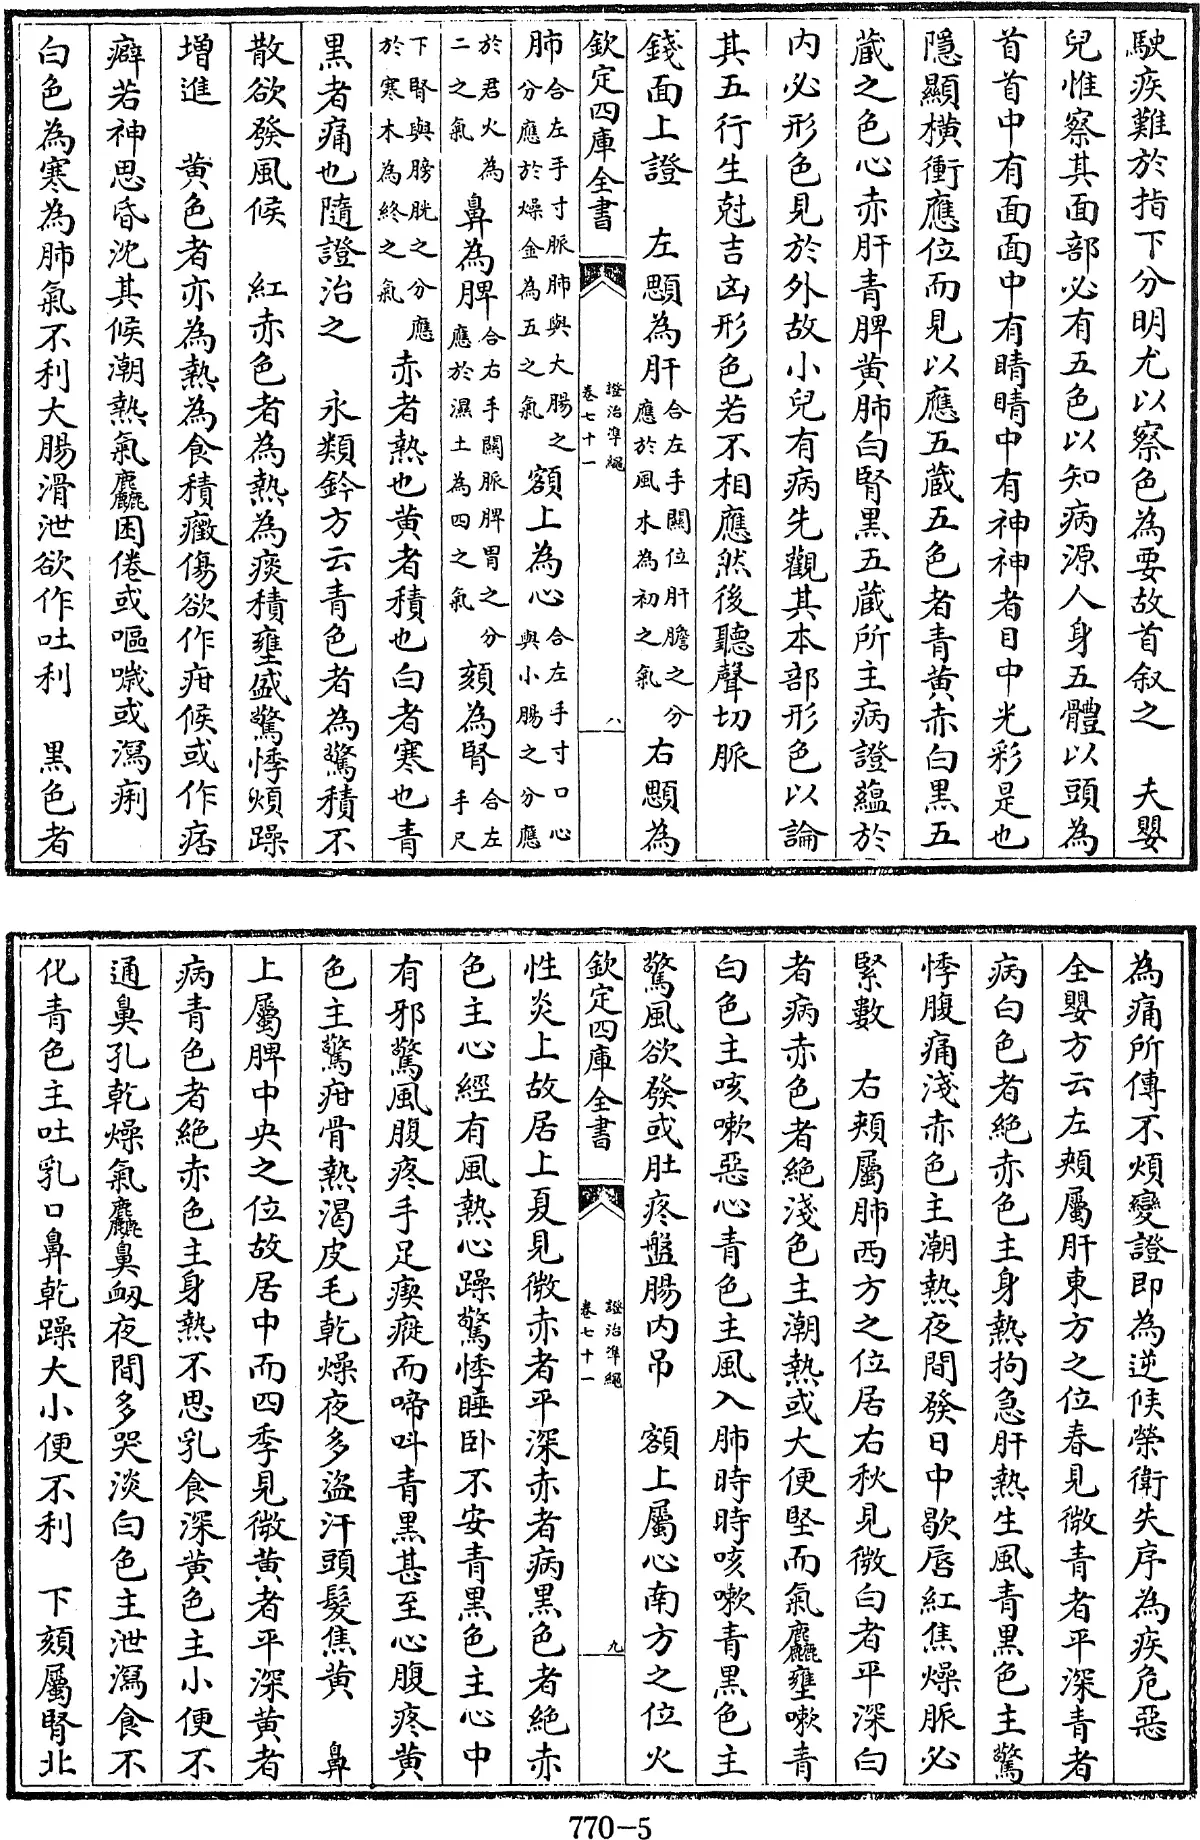 駛疾難於指下分明尤以察色為要故首叙之　夫嬰
兒惟察其面部必有五色以知病源人身五體以頭為
首首中有面面中有睛睛中有神神者目中光彩是也
隱顯橫衝應位而見以應五藏五色者青黃赤白黒五
藏之色心赤肝青脾黃肺白腎黒五藏所主病證蘊於
内必形色見於外故小兒有病先觀其本部形色以論
其五行生尅吉凶形色若不相應然後聽聲切脈
錢面上證　左顋為肝合左手關位肝膽之分應於風木為初之氣　右顋為
欽定四庫全書　證治準繩 卷七十一　八
肺合左手寸脈肺與大腸之分應於燥金為五之氣　額上為心合左手寸口心與小腸之分應
於君火為二之氣　鼻為脾合右手關脈脾胃之分應於濕土為四之氣　頦為腎合左手尺
下腎與膀胱之分應於寒木為終之氣　赤者熱也黃者積也白者寒也青
黒者痛也隨證治之　永類鈐方云青色者為驚積不
散欲發風候　紅赤色者為熱為痰積壅盛驚悸煩躁
增進　黃色者亦為熱為食積癥傷欲作疳候或作痞
癖若神思昏沈其候潮熱氣麤困倦或嘔噦或瀉痢
白色為寒為肺氣不利大腸滑泄欲作吐利　黒色者
為痛所傳不煩變證即為逆候榮衛失序為疾危惡
全嬰方云左頰屬肝東方之位春見微青者平深青者
病白色者絕赤色主身熱拘急肝熱生風青黒色主驚
悸腹痛淺赤色主潮熱夜間發日中歇唇紅焦燥脈必
緊數　右頰屬肺西方之位居右秋見微白者平深白
者病赤色者絕淺色主潮熱或大便堅而氣麤壅嗽青
白色主咳嗽惡心青色主風入肺時時咳嗽青黒色主
驚風欲發或肚疼盤腸内吊　額上屬心南方之位火
欽定四庫全書　證治準繩 卷七十一　九
性炎上故居上夏見微赤者平深赤者病黒色者絕赤
色主心經有風熱心躁驚悸睡卧不安青黒色主心中
有邪驚風腹疼手足瘈瘲而啼呌青黒甚至心腹疼黃
色主驚疳骨熱渴皮毛乾燥夜多盜汗頭髮焦黃　鼻
上屬脾中央之位故居中而四季見微黃者平深黃者
病青色者絕赤色主身熱不思乳食深黃色主小便不
通鼻孔乾燥氣麤鼻衂夜間多哭淡白色主泄瀉食不
化青色主吐乳口鼻乾躁大小便不利　下頦屬腎北
770-5